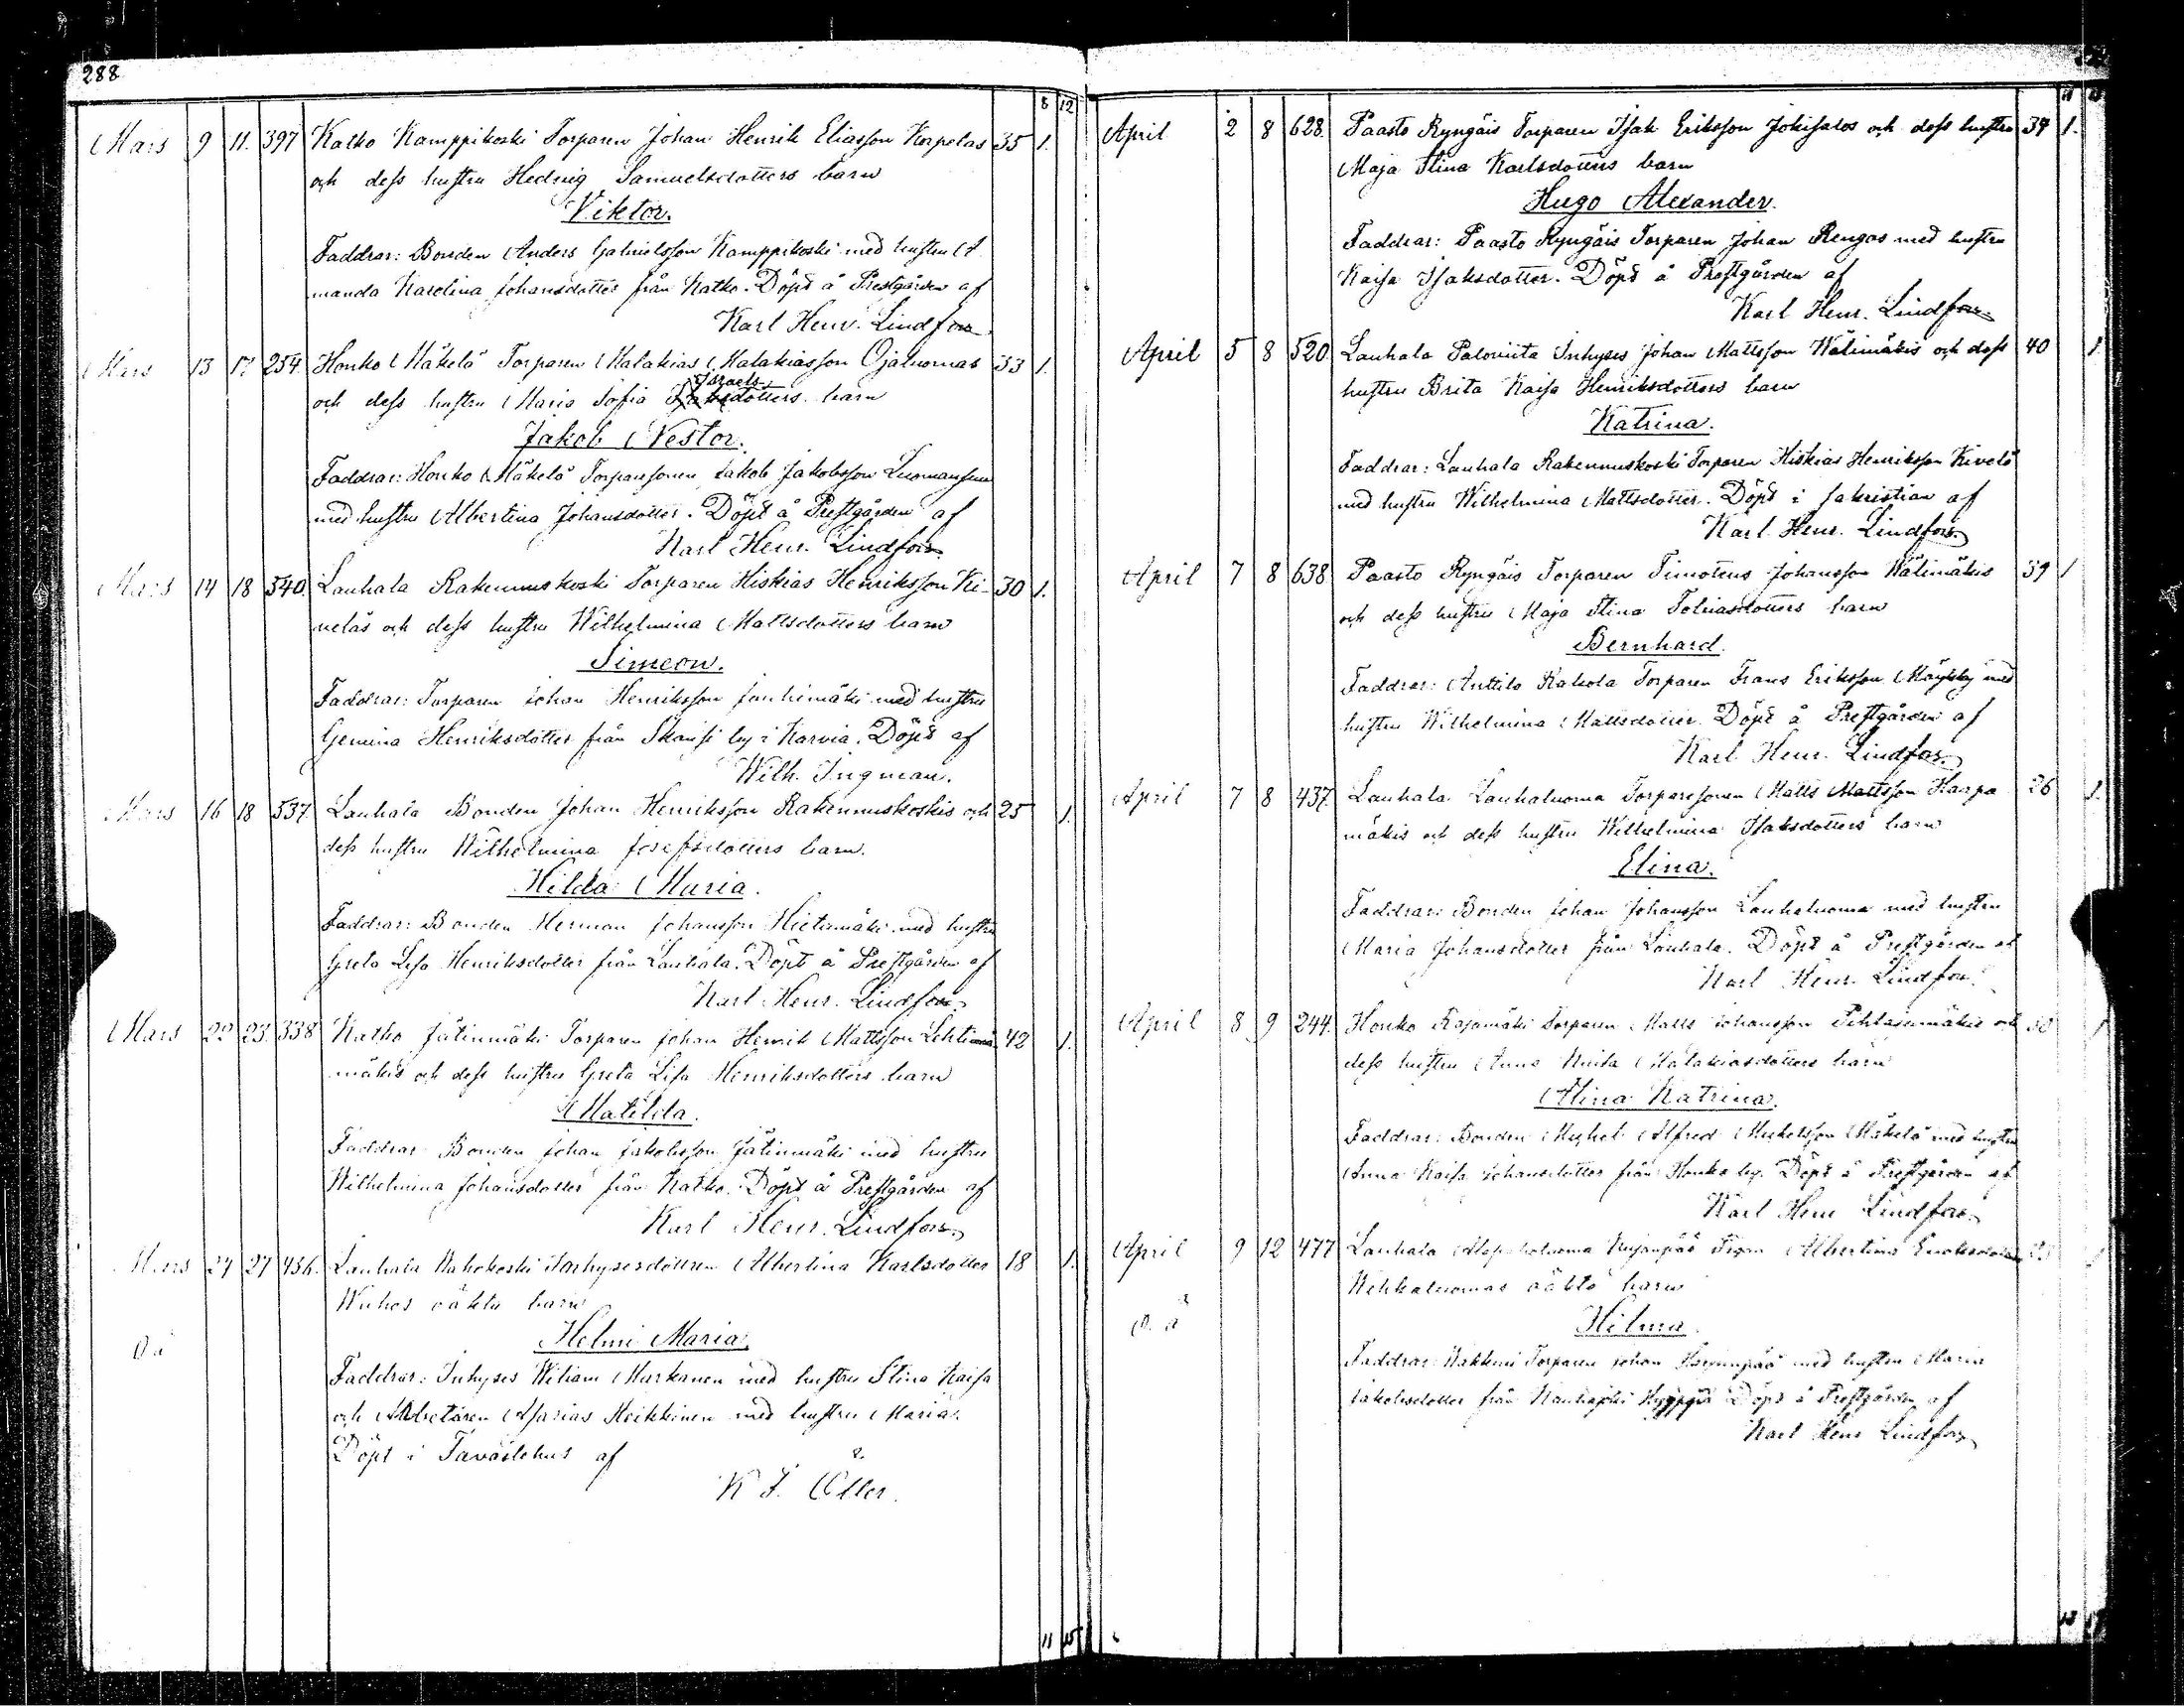 288
8 12
Mars 9 11. 397 Katko Kamppikoski Torparen Johan Henrik Eliasson Korpelas 35 1.
och dess hustru Hedvig Samuelsdotters barn
Viktor.
Faddrar: Bonden Anders Gabrielsson Kamppikoski med hustru A
manda Karolina Johansdotter från Katko. Döpt å Prestgården af
Karl Henr. Lindfors
Mars 13 17 254. Honko Mäkelä Torparen Malakias Malakiasson Ojaluomas 33 1.
Israels
och dess hustru Maria Sofia dotters barn
Jakob Nestor.
Faddrar: Honko Mäkelä Torparesonen Jakob Jakobsson
med hustru Albertina Johansdotter. Döpt å Prestgården af
Karl Henr. Lindfors
Mars 14 18 540. Lauhala Rakennuskoski Torparen Hiskias Henriksson Ki- 30 1.
veläs och dess hustru Wilhelmina Mattsdotters barn
Simeon.
Faddrar: Torparen Johan Henriksson Jouhimäki med hustru
Gemina Henriksdotter från Skantsi by i Karvia. Döpt af
Wilh. Ingman.
Mars 16 18 537. Lauhala Bonden Johan Henriksson Rakennuskoskis och 25 1.
dess hustru Wilhelmina Josefsdotters barn.
Hilda Maria.
Faddrar: Bonden Herman Johansson Hietamäki med hustru
Greta Lisa Henriksdotter från Lauhala. Döpt å Prestgården af
Karl Henr. Lindfors
Mars 22 23. 338 Katko Jätinmäki Torparen Johan Henrik Mattsson Lehti 42 1.
mäkis och dess hustru Greta Lisa Henriksdotters barn
Matilda.
Faddrar Bonden Johan Jakobsson Jätinmäki med hustru
Wilhelmina Johansdotter från Katko. Döpt å Prestgården af
Karl Henr. Lindfors
Mars 24 27 456. Lauhala Inhysesdottren Albertina Karlsdotter 18 1.
oäkta barn
O ä
Helmi Maria.
Faddrar: Inhyses Wiliam Markanen med hustru Stina Kaisa
och Arbetaren Asarias Heikkinen med hustru Maria.
Döpt i Tavastehus af
K. F. Öller.
11 15
April 2 8 628. Paasto Ryngäis Torparen Isak Eriksson Jokisalos och dess hustru 34 1.
Maja Stina Karlsdotters barn
Hugo Alexander.
Faddrar: Paasto Ryngäis Torparen Johan Rengas med hustru
Kaisa Isaksdotter. Döpt å Prestgården af
Karl Henr. Lindfors
April 5 8 520. Lauhala Paloviita Inhyses Johan Mattsson Wälimäkis och dess 40 1.
hustru Brita Kaisa Henriksdotters barn
Katrina.
Faddrar: Lauhala Rakennuskoski Torparen Hiskias Henriksson Kivelä
med hustru Wilhelmina Mattsdotter. Döpt i sakristian af
Karl Henr. Lindfors
April 7 8 638 Paasto Ryngäis Torparen Timoteus Johansson Wälimäkis 39 1
och dess hustru Maja Stina Tobiasdotters barn
Bernhard.
Faddrar: Anttila Kakola Torparen Frans Eriksson med
hustru Wilhelmina Mattsdotter. Döpt å Prestgården af
Karl Henr. Lindfors
April 7 8 437. Lauhala Lauhaluoma Torparesonen Matts Mattsson Haapa 26 1.
mäkis och dess hustru Wilhelmina Isaksdotters barn
Elina.
Faddrar: Bonden Johan Johansson Lauhaluoma med hustru
Maria Johansdotter från Lauhala. Döpt å Prestgården af
Karl Henr. Lindfors
April 8 9 244. Honko Rajamäki Torparen Matts Johansson Pihlajamäkis och
dess hustru Anna Malakiasdotters barn
Alina Katrina.
Faddrar: Bonden Michel Alfred Michelsson Mäkelä med hustru
Anna Kaisa Johansdotter från Honko by. Döpt å Prestgården af
Karl Henr Lindfors
April 9 12 477 Lauhala Pigan Albertina
oäkta barn
O. ä
Hilma.
Faddrar: Torparen Johan med hustru Maria
Jakobsdotter från Döpt å Prestgården af
Karl Henr Lindfors